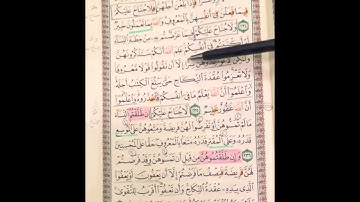 فَلَا جُنَاحَ عَلَيْكُمْ
فِيمَا فَعَلْنَ فِىٓ أَنفُسِهِنَّ بِٱلْمَعْرُوفِ وَٱللَّهُ بِمَا تَعْمَلُونَ خَبِيرٌ
٢٣٤ وَلَا جُنَاحَ عَلَيْكُمْ فِيمَا عَرَّضْتُم بِهِۦ مِنْ خِطْبَةِ ٱلنِّسَآءِ
أَوْ أَكْنَنتُمْ فِىٓ أَنفُسِكُمْ عَلِمَ ٱللَّهُ أَنَّكُمْ سَتَذْكُرُونَهُنَّ
وَلَٰكِن لَّا تُوَاعِدُوهُنَّ سِرًّا إِلَّآ أَن تَقُولُوا۟ قَوْلًا مَّعْرُوفًا
وَلَا تَعْزِمُوا۟ عُقْدَةَ ٱلنِّكَاحِ حَتَّىٰ يَبْلُغَ ٱلْكِتَٰبُ أَجَلَهُۥ
وَٱعْلَمُوٓا۟ أَنَّ ٱللَّهَ يَعْلَمُ مَا فِىٓ أَنفُسِكُمْ فَٱحْذَرُوهُ وَٱعْلَمُوٓا۟
أَنَّ ٱللَّهَ غَفُورٌ حَلِيمٌ ٢٣٥ لَّا جُنَاحَ عَلَيْكُمْ إِن طَلَّقْتُمُ ٱلنِّسَآءَ
مَا لَمْ تَمَسُّوهُنَّ أَوْ تَفْرِضُوا۟ لَهُنَّ فَرِيضَةً وَمَتِّعُوهُنَّ عَلَى ٱلْمُوسِعِ
قَدَرُهُۥ وَعَلَى ٱلْمُقْتِرِ قَدَرُهُۥ مَتَٰعًۢا بِٱلْمَعْرُوفِ حَقًّا عَلَى ٱلْمُحْسِنِينَ
٢٣٦ وَإِن طَلَّقْتُمُوهُنَّ مِن قَبْلِ أَن تَمَسُّوهُنَّ وَقَدْ فَرَضْتُمْ
لَهُنَّ فَرِيضَةً فَنِصْفُ مَا فَرَضْتُمْ إِلَّآ أَن يَعْفُونَ أَوْ يَعْفُوَا۟
ٱلَّذِى بِيَدِهِۦ عُقْدَةُ ٱلنِّكَاحِ وَأَن تَعْفُوٓا۟ أَقْرَبُ لِلتَّقْوَىٰ